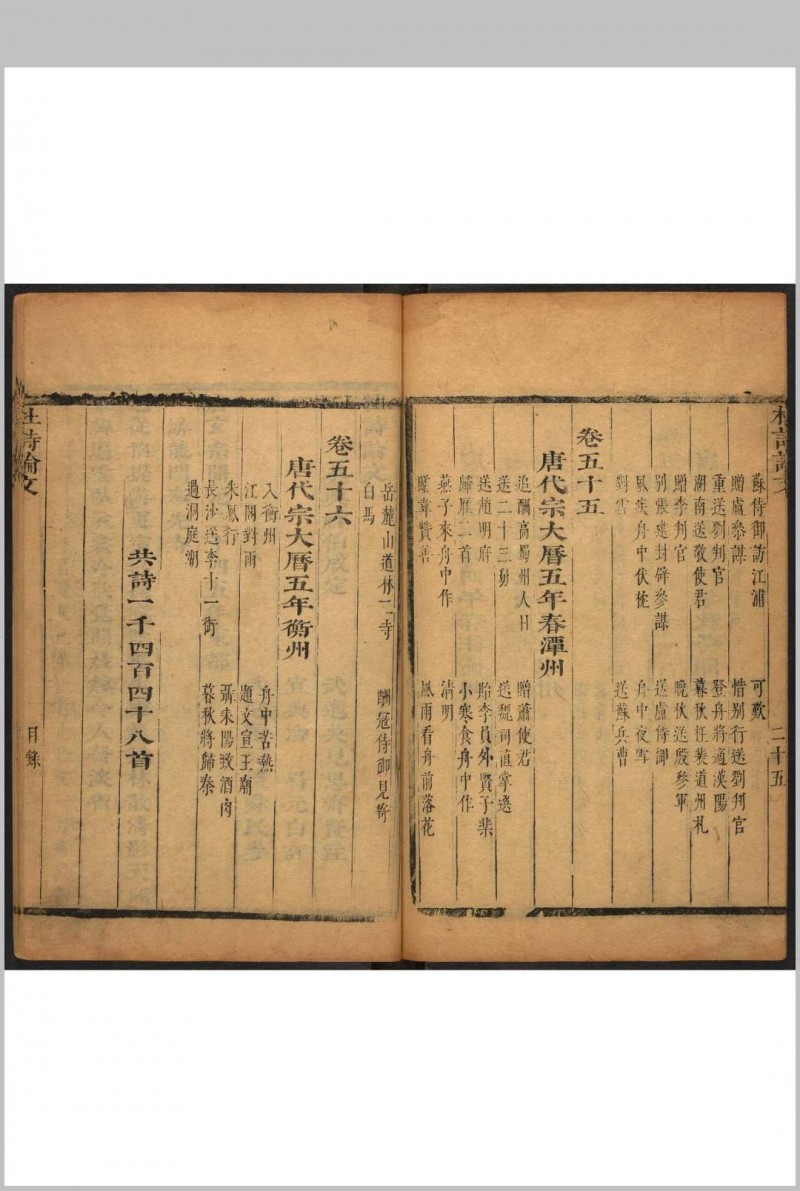 杜詩論文 二十五
蘇侍御訪江浦 可歎
贈盧參謀 惜別行送劉判官
重送劉判官 登舟將適漢陽
湖南送敬使君 暮秋枉裴道州札
贈李判官 晚秋送殷參軍
別張建封辟參謀 送盧侍御
風疾舟中伏枕 舟中夜雪
對雪 送蘇兵曹
卷五十五
唐代宗大曆五年春潭州
追酬高蜀州人日 贈蕭使君
送二十三舅 送魏司直掌選
送趙明府 貽李員外賢子棐
歸雁二首 小寒食舟中作
燕子來舟中作 清明
贈韋贊善 風雨看舟前落花
岳麓山道林二寺 酬寇侍御見寄
白馬
卷五十六
唐代宗大曆五年衡州
入衡州 舟中苦熱
江閣對雨 題文宣王廟
朱鳳行 聶耒陽致酒肉
長沙送李十一銜 暮秋將歸秦
過洞庭湖
共詩一千四百四十八首
杜詩論文 目錄